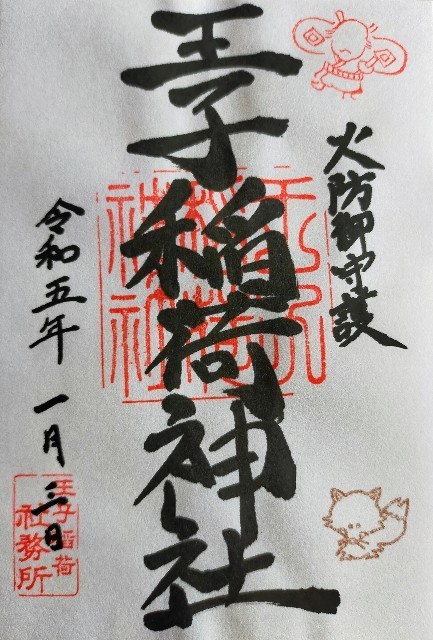 火防御守護
王子稲荷神社
令和五年 一月 三日
王子稲荷
社務所